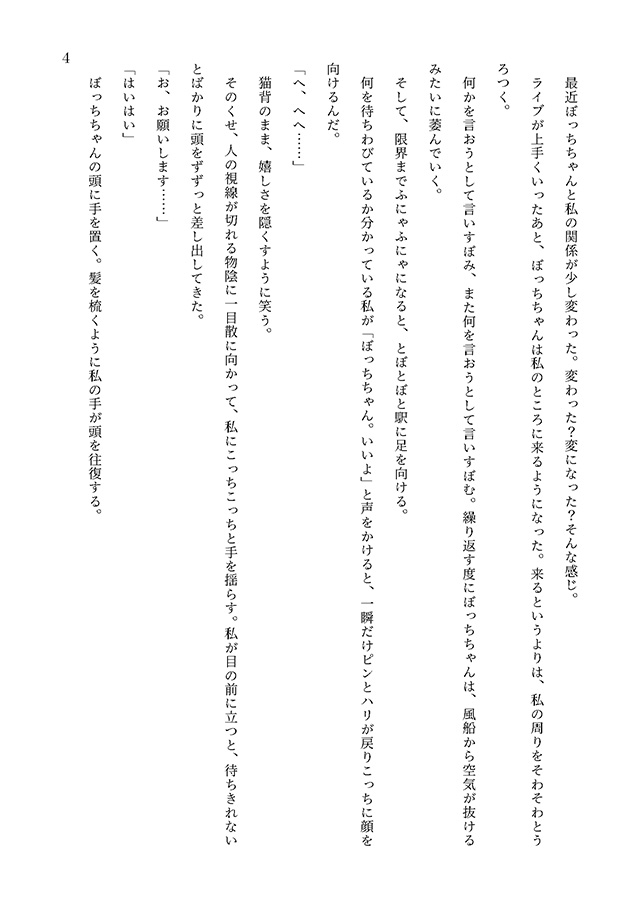 最近ぼっちちゃんと私の関係が少し変わった。変わった？変になった？そんな感じ。
ライブが上手くいったあと、ぼっちちゃんは私のところに来るようになった。来るというよりは、私の周りをそわそわとう
ろつく。
何かを言おうとして言いすぼみ、また何を言おうとして言いすぼむ。繰り返す度にぼっちちゃんは、風船から空気が抜ける
みたいに萎んでいく。
そして、限界までふにゃふにゃになると、とぼとぼと駅に足を向ける。
何を待ちわびているか分かっている私が「ぼっちちゃん。いいよ」と声をかけると、一瞬だけピンとハリが戻りこっちに顔を
向けるんだ。
「へ、へへ……」
猫背のまま、嬉しさを隠くすように笑う。
そのくせ、人の視線が切れる物陰に一目散に向かって、私にこっちこっちと手を揺らす。私が目の前に立つと、待ちきれない
とばかりに頭をずずっと差し出してきた。
「お、お願いします……」
「はいはい」
ぼっちちゃんの頭に手を置く。髪を梳くように私の手が頭を往復する。
4